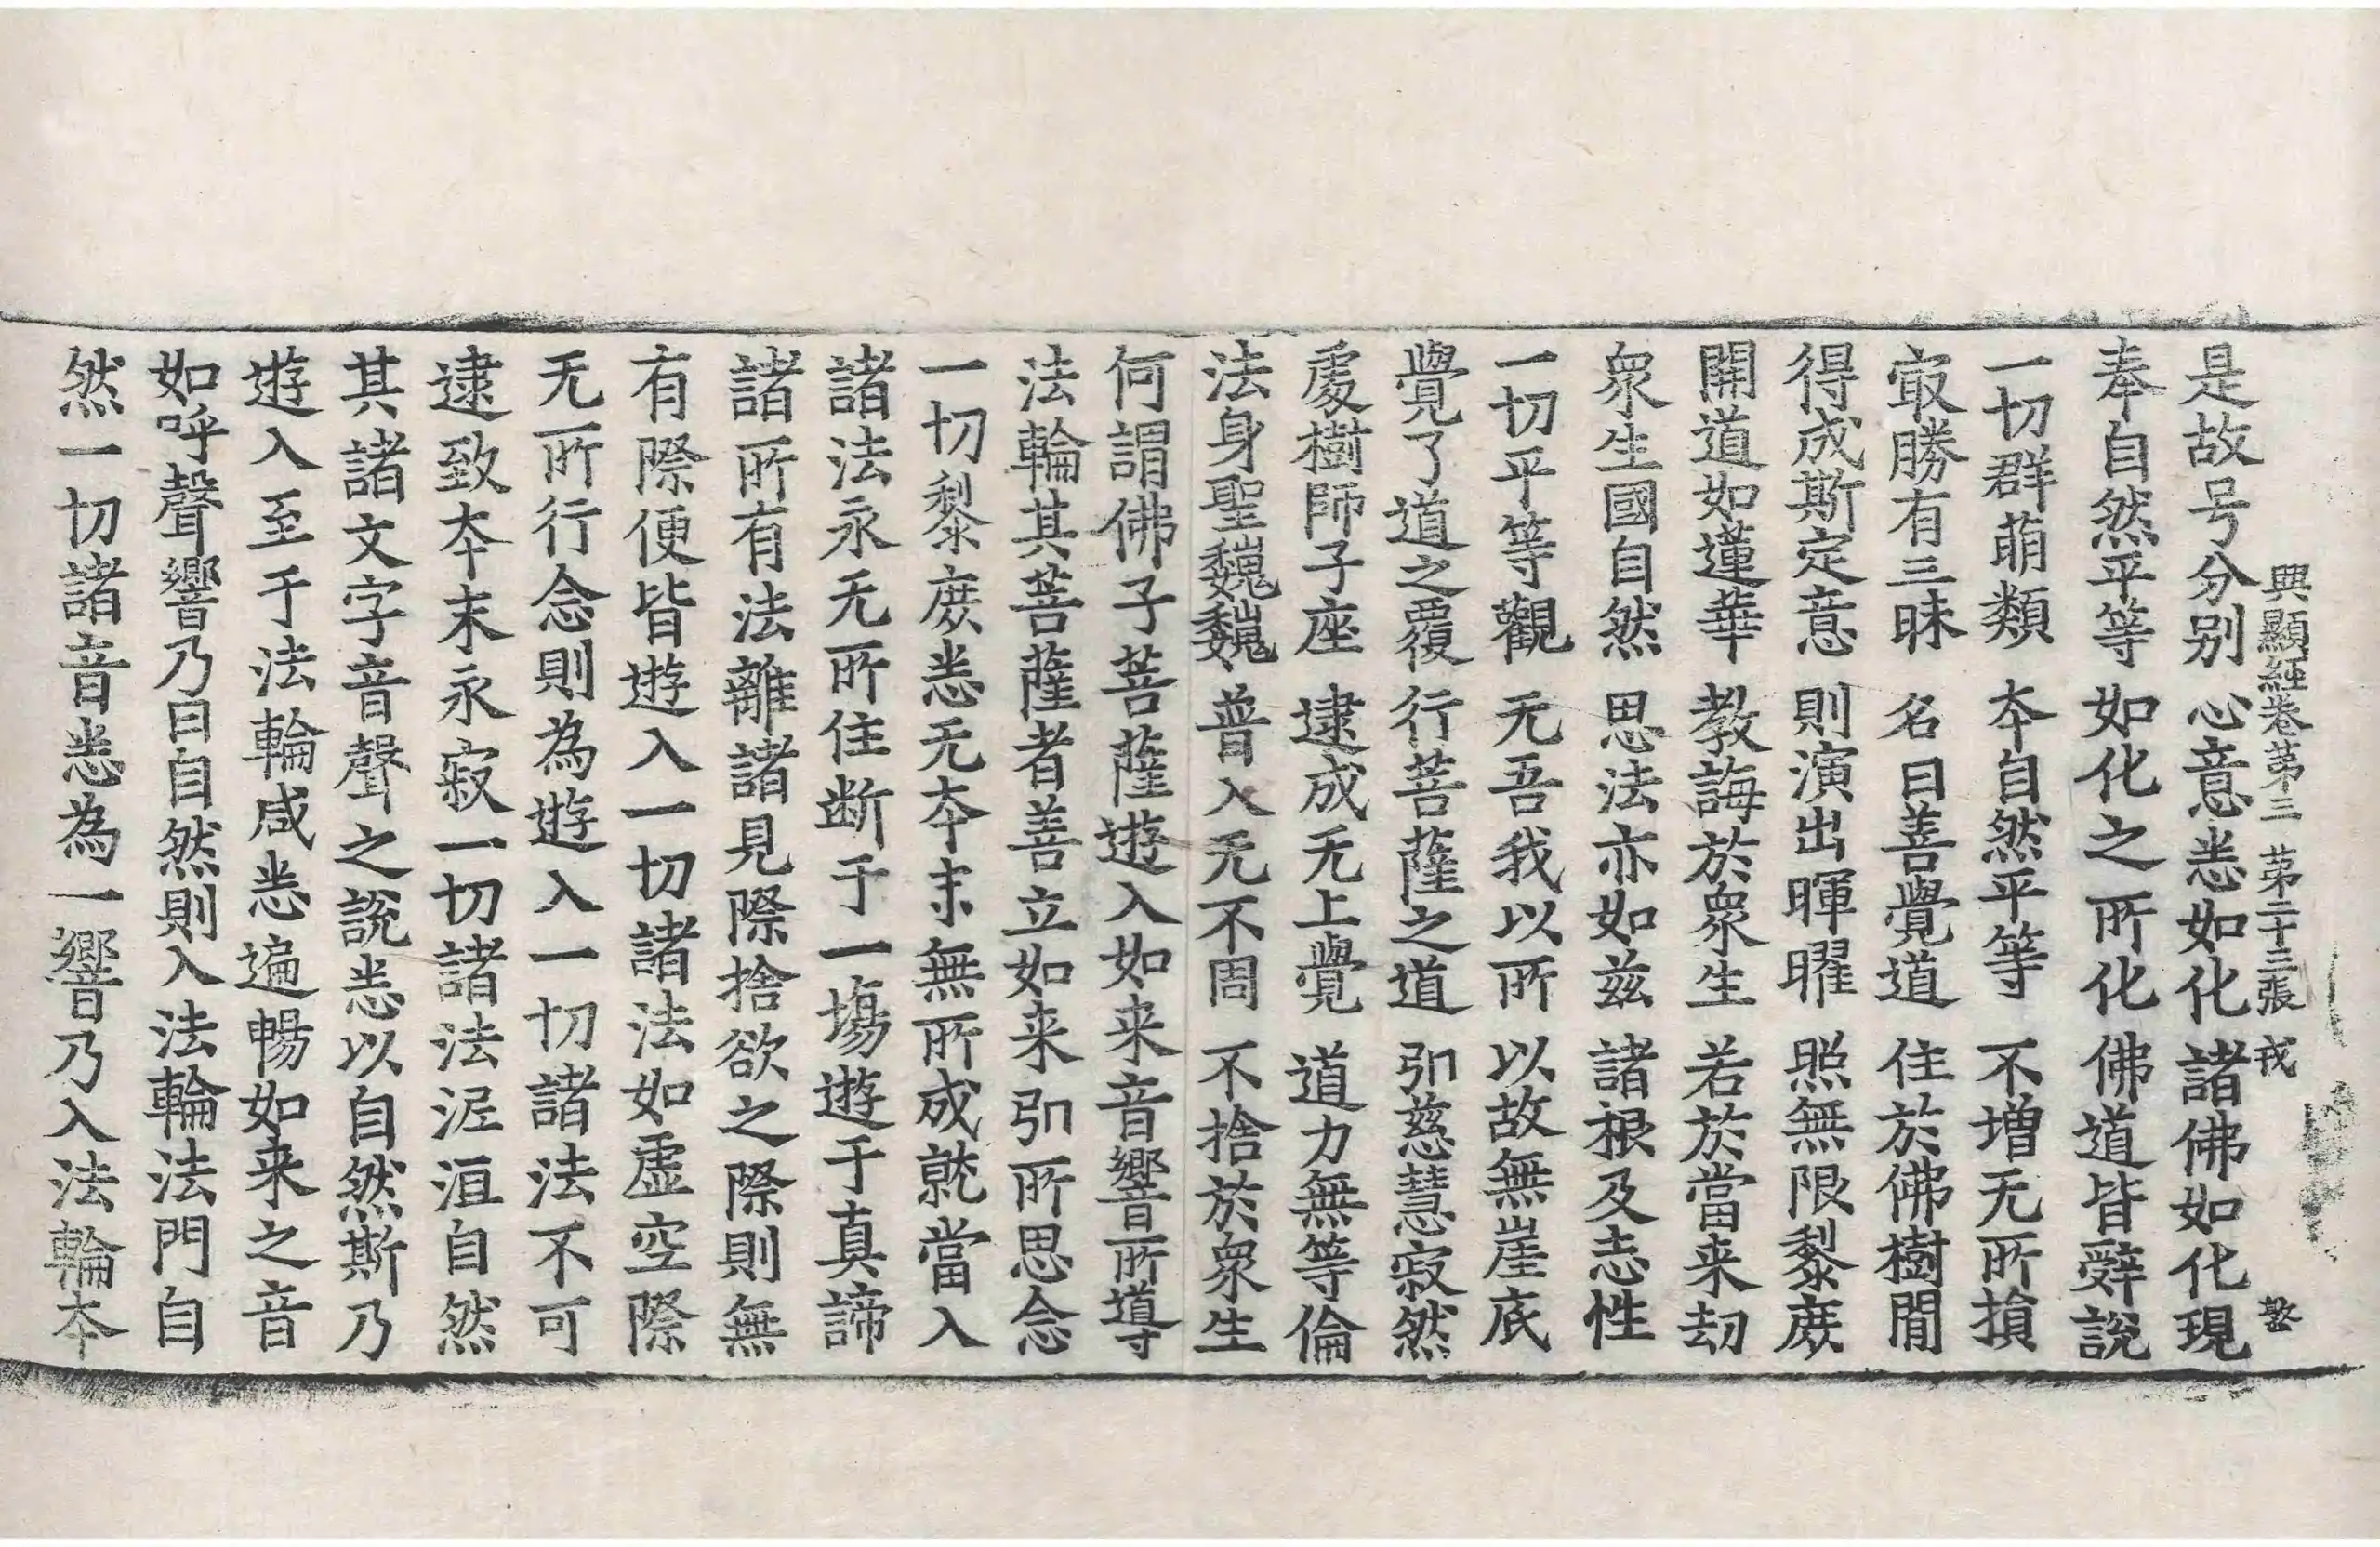 興顯経卷第三 第二十三張 戎 敬
是故号分别 心意悉如化 諸佛如化現
奉自然平等 如化之所化 佛道皆辤說
一切群萌類 夲自然平等 不增无所損
㝡勝有三昧 名曰善覺道 住於佛樹閒
得成斯定意 則演出暉曜 照無限黎庻
開道如蓮華 教誨於衆生 若於當来劫
衆生國自然 思法亦如兹 諸根及志性
一切平等觀 无吾我以所 以故無崖底
覺了道之覆 行菩薩之道 引慈慧寂然
處樹師子座 逮成无上覺 道力無等倫
法身聖巍巍 普入无不周 不捨於衆生
何謂佛子菩薩遊入如来音響所導
法輪其菩薩者善立如来引所思念
一切黎庻悉无夲末無所成就當入
諸法永无所住断于一塲遊于真諦
諸所有法離諸見際捨欲之際則無
有際便皆遊入一切諸法如虛空際
无所行念則為遊入一切諸法不可
逮致夲末永寂一切諸法泥洹自然
其諸文字音聲之說悉以自然斯乃
遊入至于法輪咸悉遍暢如来之音
如呼聲響乃曰自然則入法輪法門自
然一切諸音悉為一響乃入法輪夲